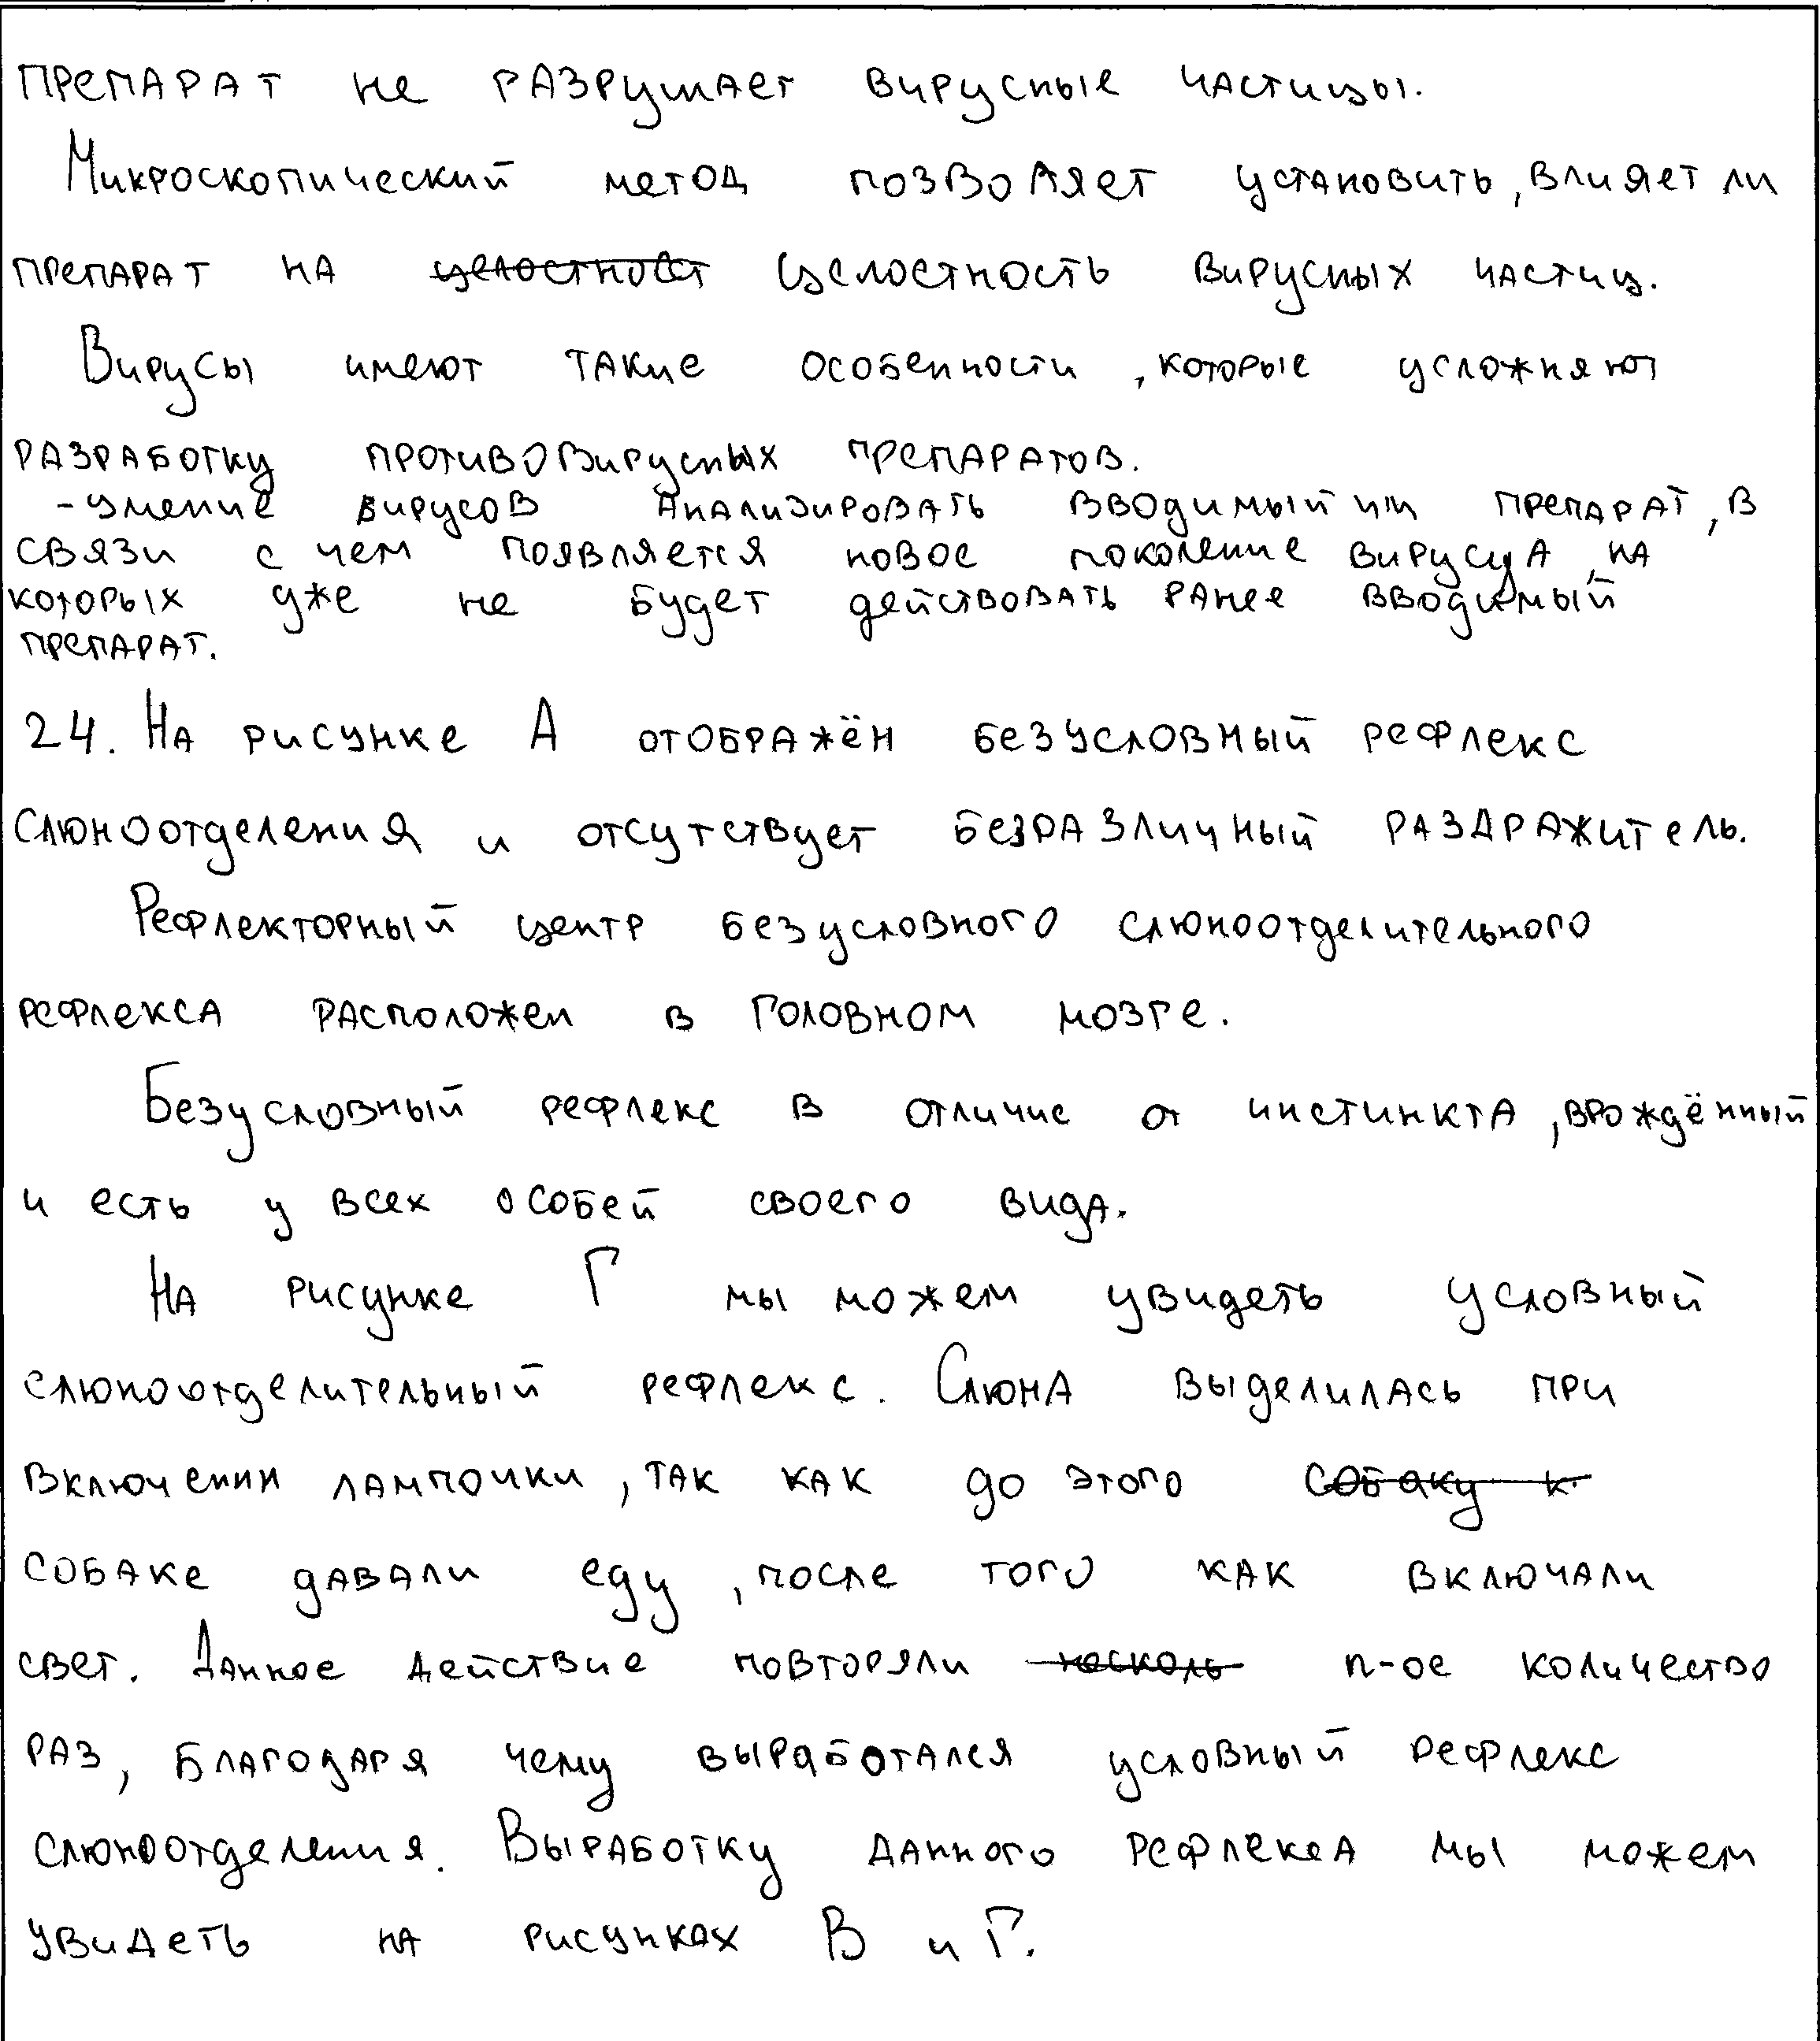 препарат не разрушает вирусные частицы.
Микроскопический метод позволяет установить, влияет ли
препарат на целостност целостность вирусных частиц.
Вирусы имеют такие особенности, которые усложняют
разработку противовирусных препаратов.
- умение вирусов анализировать вводимый им препарат, в
связи с чем появляется новое поколение вируса, на
которых уже не будет действовать ранее вводимый
препарат.
24. На рисунке А отображён безусловный рефлекс
слюноотделения и отсутствует безразличный раздражитель.
Рефлекторный центр безусловного слюноотделительного
рефлекса расположен в головном мозге.
Безусловный рефлекс в отличие от инстинкта, врождённый
и есть у всех особей своего вида.
На рисунке Г мы можем увидеть условный
слюноотделительный рефлекс. Слюна выделилась при
включении лампочки, так как до этого собаку к
собаке давали еду, после того как включали
свет. Данное действие повторяли несколь n-ое количество
раз, благодаря чему выработался условный рефлекс
слюноотделения. Выработку данного рефлекса мы можем
увидеть на рисунках В и Г.